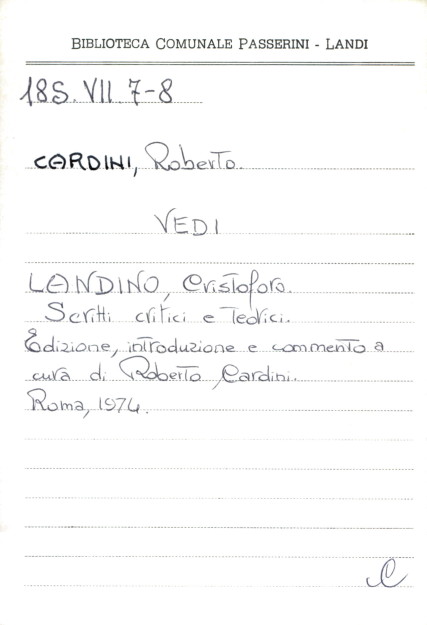 BIBLIOTECA COMUNALE PASSERINI - LANDI
18S. VII. 7-8
CARDINI, Roberto.
VEDI
LANDINO, Cristoforo.
Scritti critici e teorici.
Edizione, introduzione e commento a
cura di Roberto Cardini.
Roma, 1974.
C